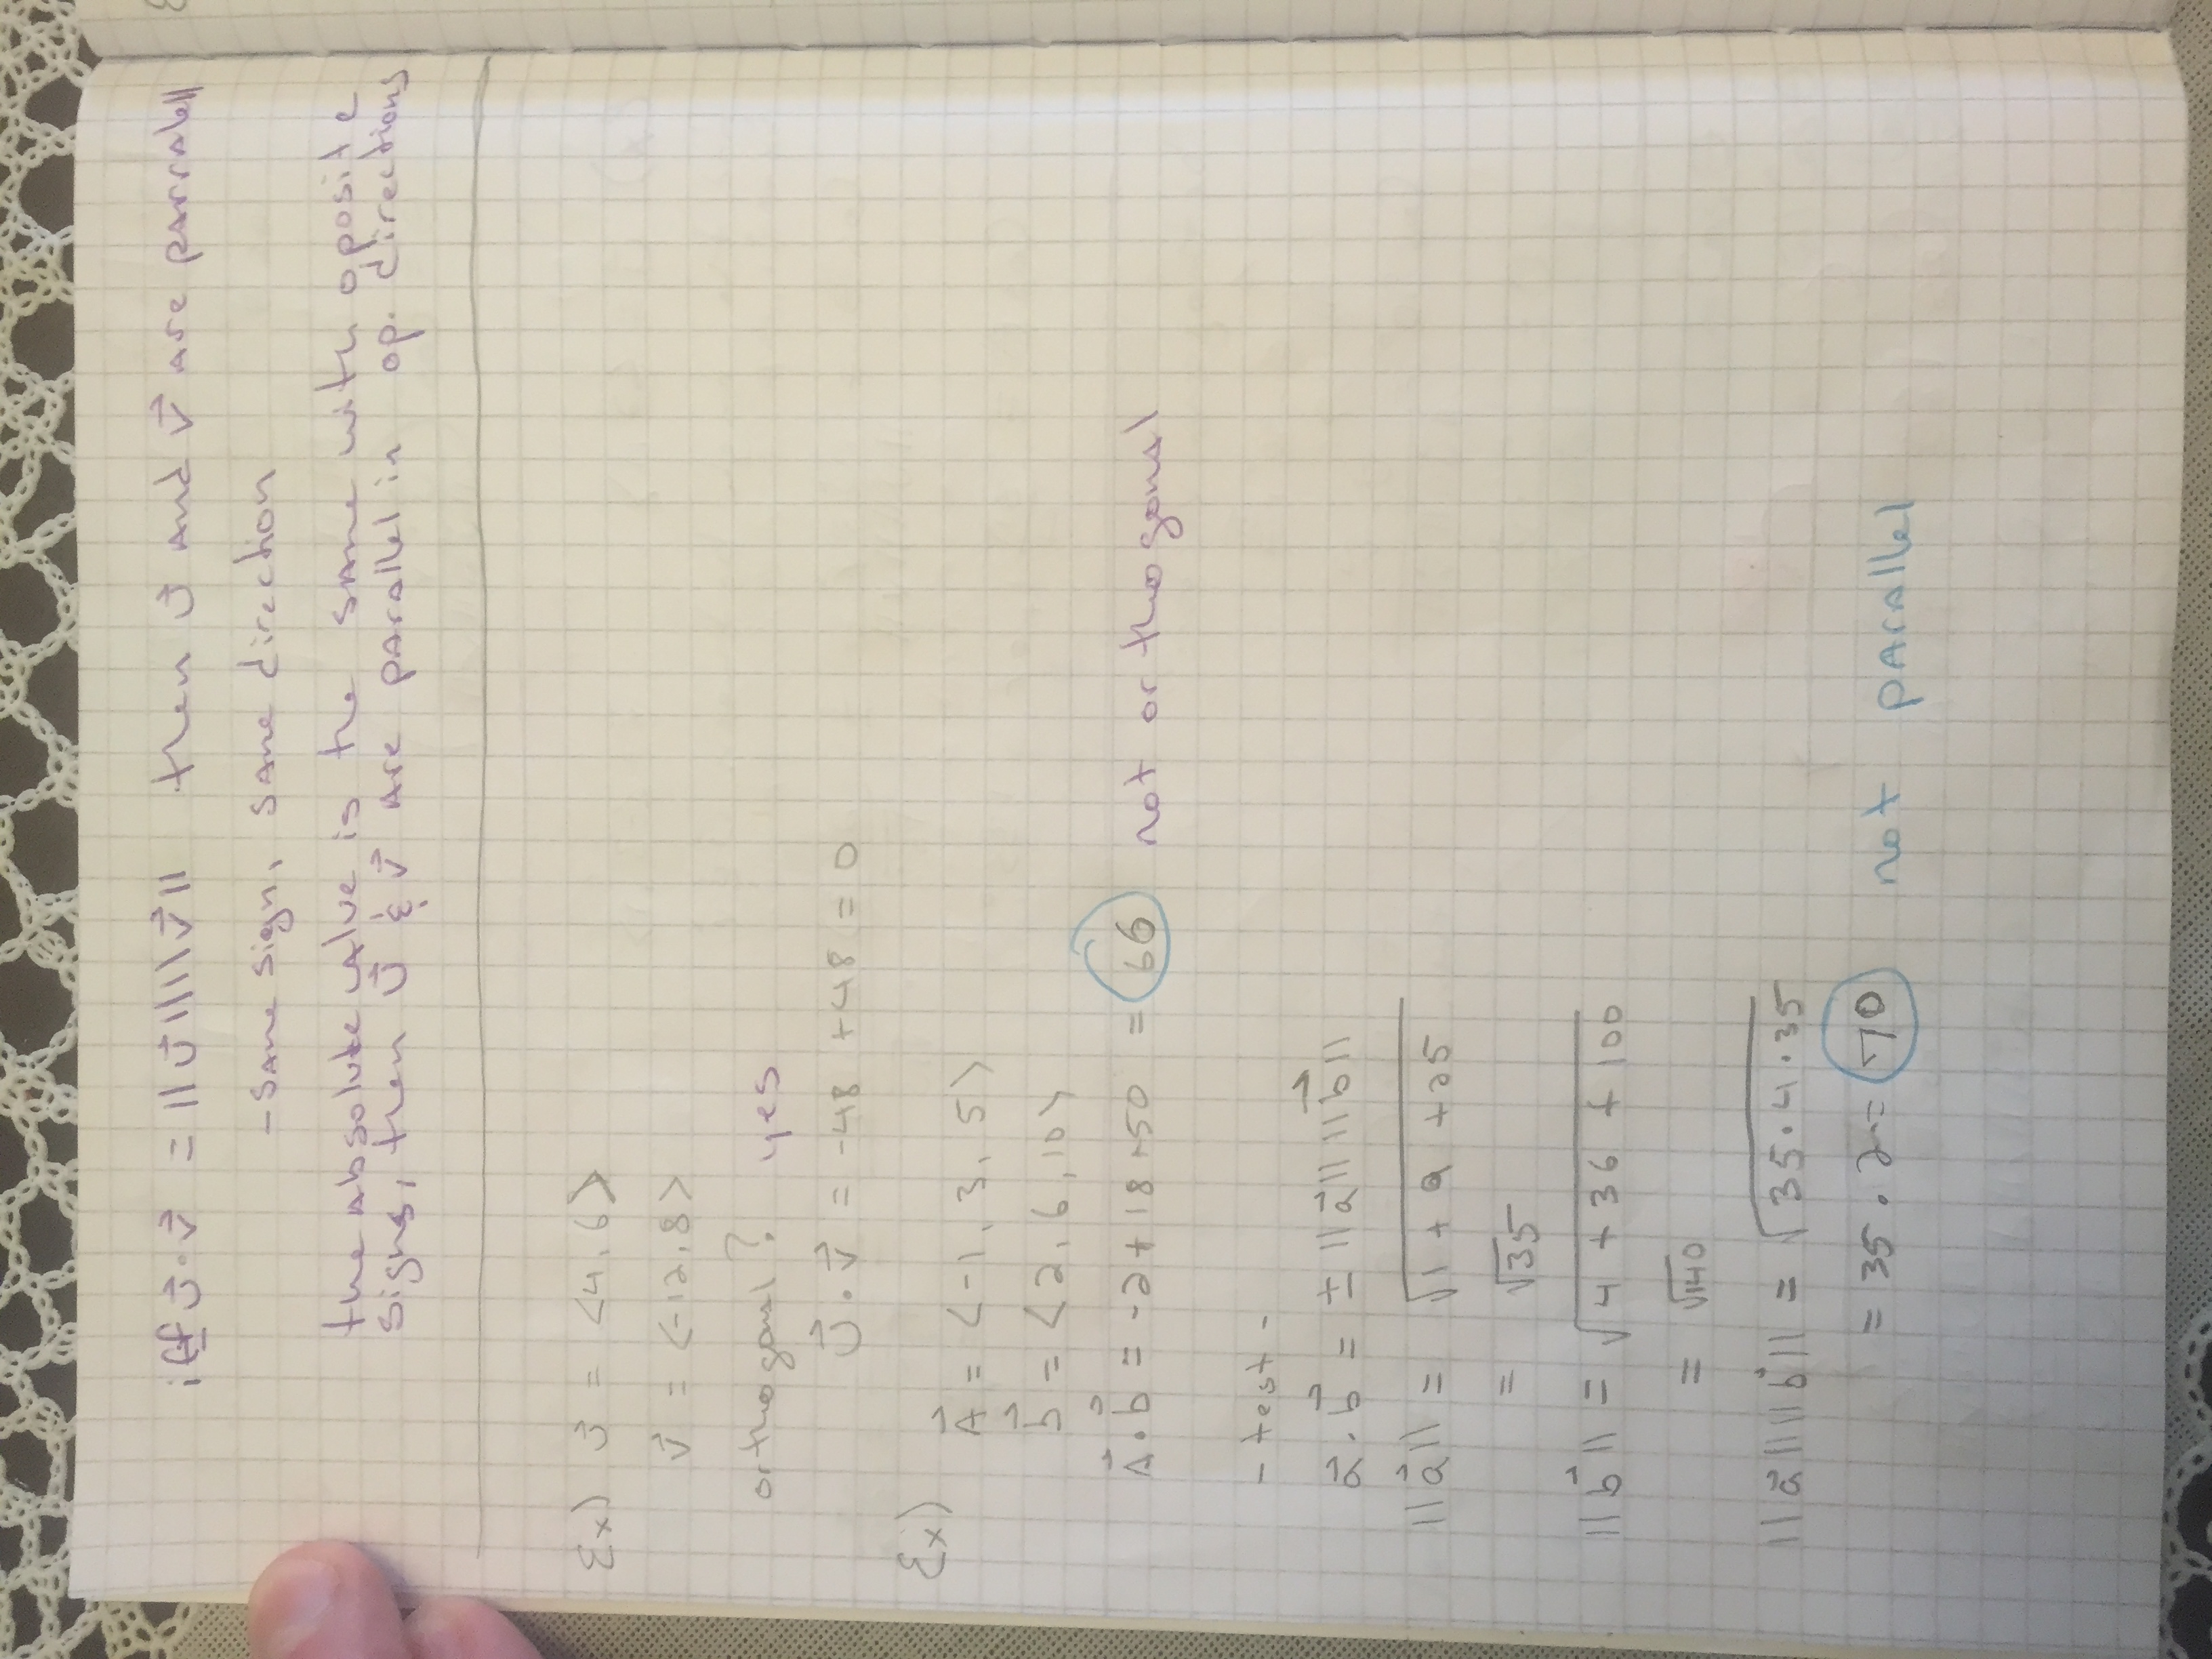 iff u⃗·v⃗ = ||u⃗|| ||v⃗|| then u⃗ and v⃗ are parralell
-same sign, same direction
the absolute value is the same with oposite
signs, then u⃗ & v⃗ are parallel in op. directions
Ex) u⃗ = <4, 6>
v⃗ = <-12, 8>
orthogonal? yes
u⃗·v⃗ = -48 +48 = 0
Ex)
A⃗ = <-1, 3, 5>
b⃗ = <2, 6, 10>
A⃗·b⃗ = -2+18+50 = 66 not orthogonal
- test -
a⃗·b⃗ = ± ||a⃗|| ||b⃗||
||a⃗|| = √1 + 9 +25
= √35
||b⃗|| = √4 + 36 + 100
= √140
||a⃗|| ||b⃗|| = √35·4·35
= 35·2 = 70 not parallel